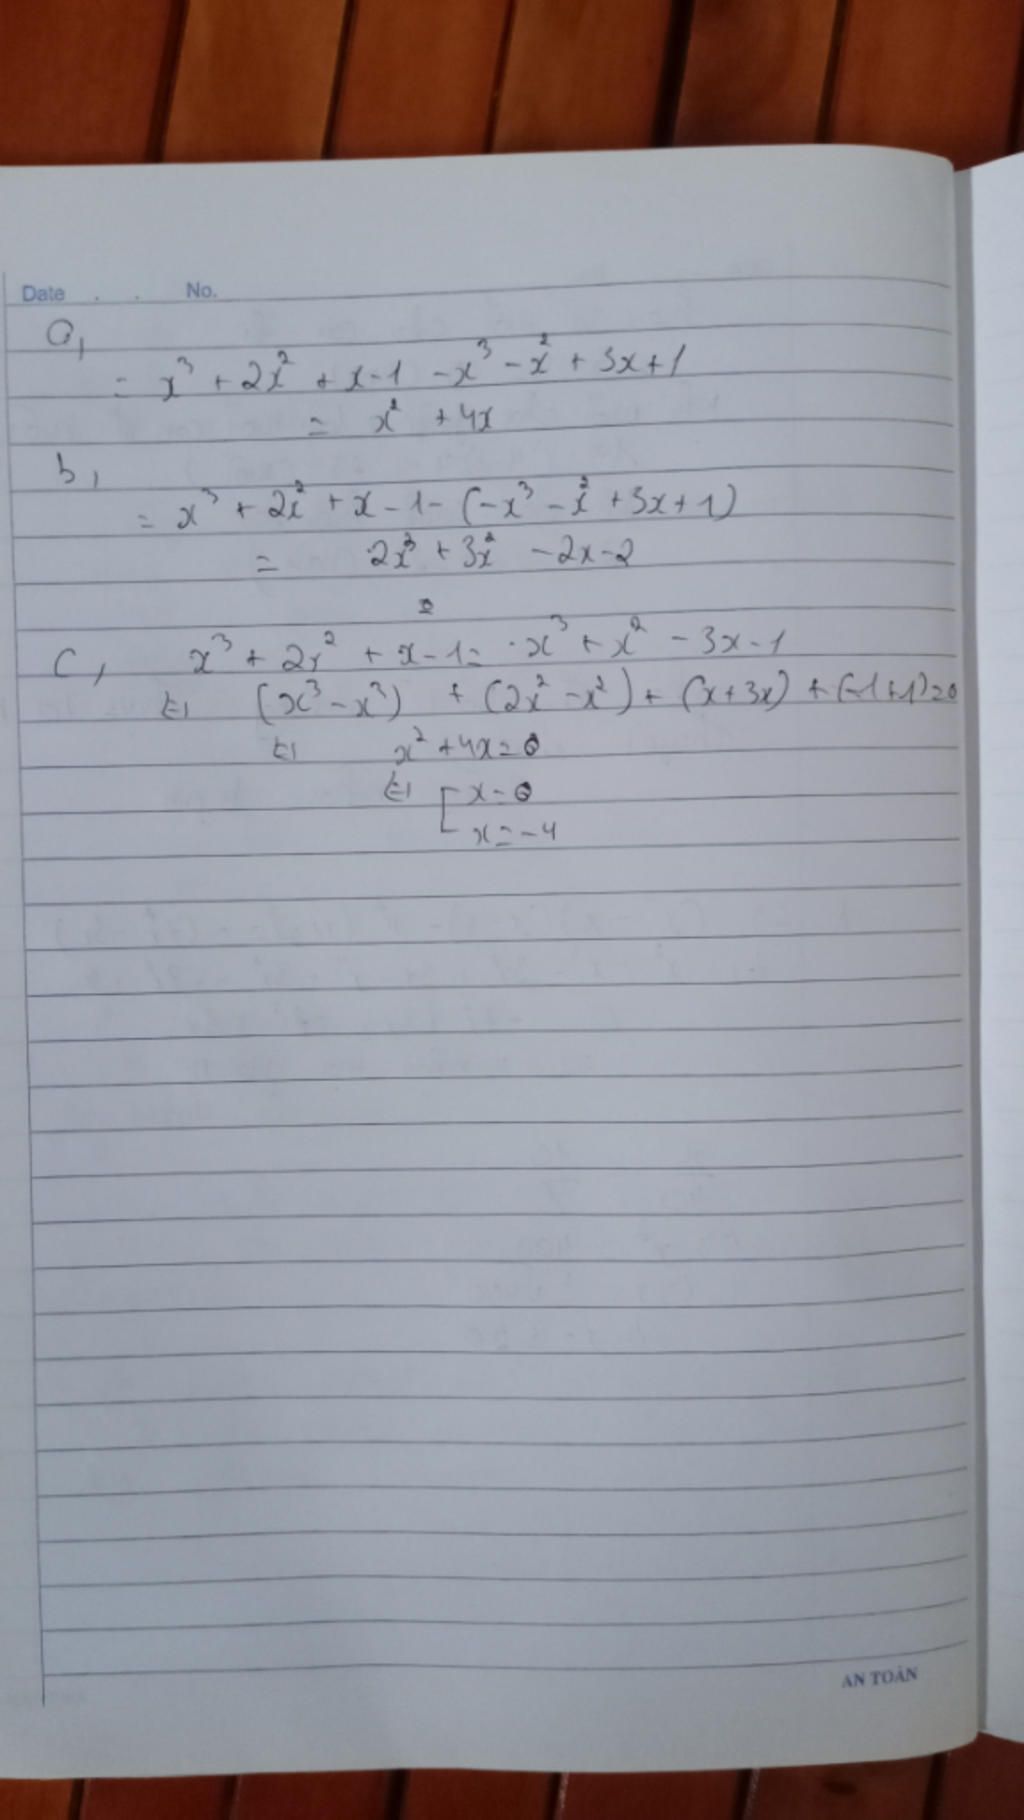 Date . . No.
a,
= x³ + 2x² + x - 1 - x³ - x² + 3x + 1
= x² + 4x
b,
= x³ + 2x² + x - 1 - (-x³ - x² + 3x + 1)
= 2x³ + 3x² - 2x - 2
c, x³ + 2x² + x - 1 = x³ + x² - 3x - 1
⇔ (x³ - x³) + (2x² - x²) + (x + 3x) + (-1 + 1) = 0
⇔ x² + 4x = 0
⇔ [ x = 0
x = -4
AN TOÀN